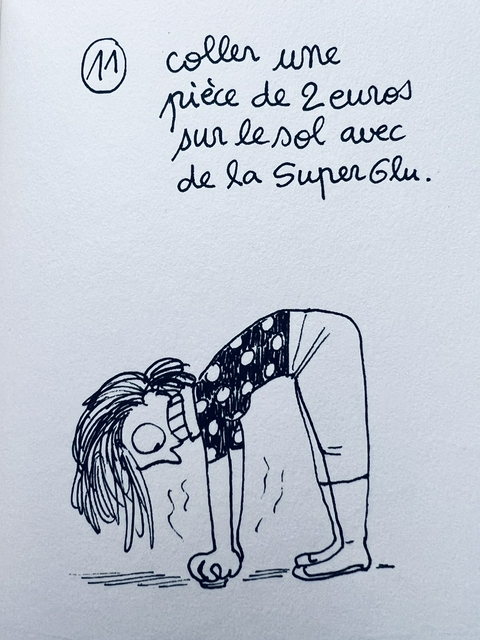 11
coller une
pièce de 2 euros
sur le sol avec
de la SuperGlu.